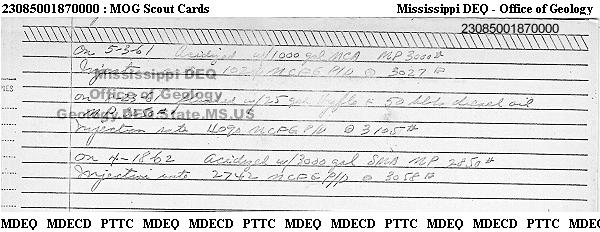 23085001870000 : MOG Scout Cards Mississippi DEQ - Office of Geology
23085001870000
On 5-3-61 Acidized w/1000 gal MCA MP 3000#
Injection MCFG P/D @ 3027#
Mississippi DEQ
Office of Geology
on w/25 gal 50 bbls diesel oil
Geology.DEQ.State.MS.US
Injection rate 4090 MCFG P/D @ 3105#
on 4-18-62 Acidized w/3000 gal SMA MP 2850#
Injection rate 2742 MCFG P/D @ 3058#
MDEQ MDECD PTTC MDEQ MDECD PTTC MDEQ MDECD PTTC MDEQ MDECD PTTC MDEQ